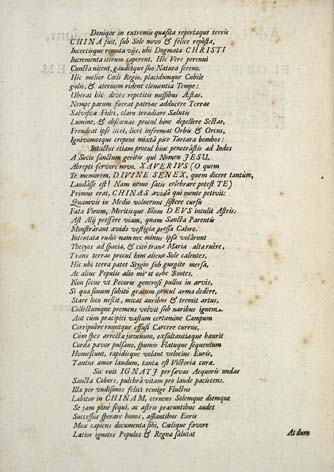 Denique in extremis quæsita repertaque terris
CHINA fuit, sub Sole novo & felice reposta,
Incertisque remota vijs, ubi Dogmata CHRISTI
Incrementa suorum caperent. Hic Vere perenni
Cuncta nitent, gaudetque suo Natura sereno.
Hic melior Cœli Regio, placidumque Cubile
solis, & æternum rident clementia Tempe:
Uberat hic deves repetitis messibus Æstas.
Nempe parum fuerat patrias adducere Terras
Salvifica Fidei, claro irradiare Salutis
Lumine, & obscœnas procul hinc depellere Sectas,
Frendeat ipse licet, licet infremat Orbis & Orcus,
Ignivomosque crepent mixtâ pice Tartara bombos:
Intactos etiam procul hinc penetrâstis ad Indos
A Socio sanctum geritis qui Nomen JESU,
Abreptì fervore novo. XAVERIUS (O quem
Te memorem, DIVINE SENEX, quem dicere tantum,
Laudâsse est! Nam nemo satis celebrare potest TE)
Primus erat, CHINAS avidâ qui mente petivit:
Quamvis in Medio voluerunt sistere cursu
Fata Virum, Meritisque Illum DEUS intulit Astris.
Ast Alij pressêre viam, quam Sancta Parentis
Monstrârant avido vestigia pressa Calore.
Intentata rudij nam nec minus ipsa volârunt
Thetyos ad spacia, & citò trans Maria alta ruêre,
Trans terras procul hinc alieno Sole calentes,
Hic ubi terra patet Seijao sub gurgite mersa,
Ac alius Populis alio micat orbe Bootes.
Non secus ut Pecoris generosi pullus in arvis,
Si qua sonum subitò gratum procul arma dedere,
Stare loco nescit, micat auribus & tremit artus,
Collectumque premens volvit sub naribus ignem.
Aut cùm præcipiti vastum certamine Campum
Corripuêre ruuntque effusi Carcere currus,
Cùm spes arrectæ juvenum, exsultantiaque haurit
Corda pavor pulsans, spumis flatuque sequentum
Humescunt, rapidisque volant velocius Euris,
Tantus amor laudum, tanta est Victoria curæ.
Sic ruit IGNATI per sævas Aequoris undas
Sancta Cohors, pulchrâ vitam pro laude paciscens.
Illa per undisonos felici remige Fluctus
Labitur in CHINAM, cernens Solemque diemque
Se jam pone sequi, ac astris præeuntibus audet
Successus sperare bonos, assentibus Euris
Mox capiens documenta sibi, Cœlique favore
Lætior ignotos Populos & Regna salutat
At dum